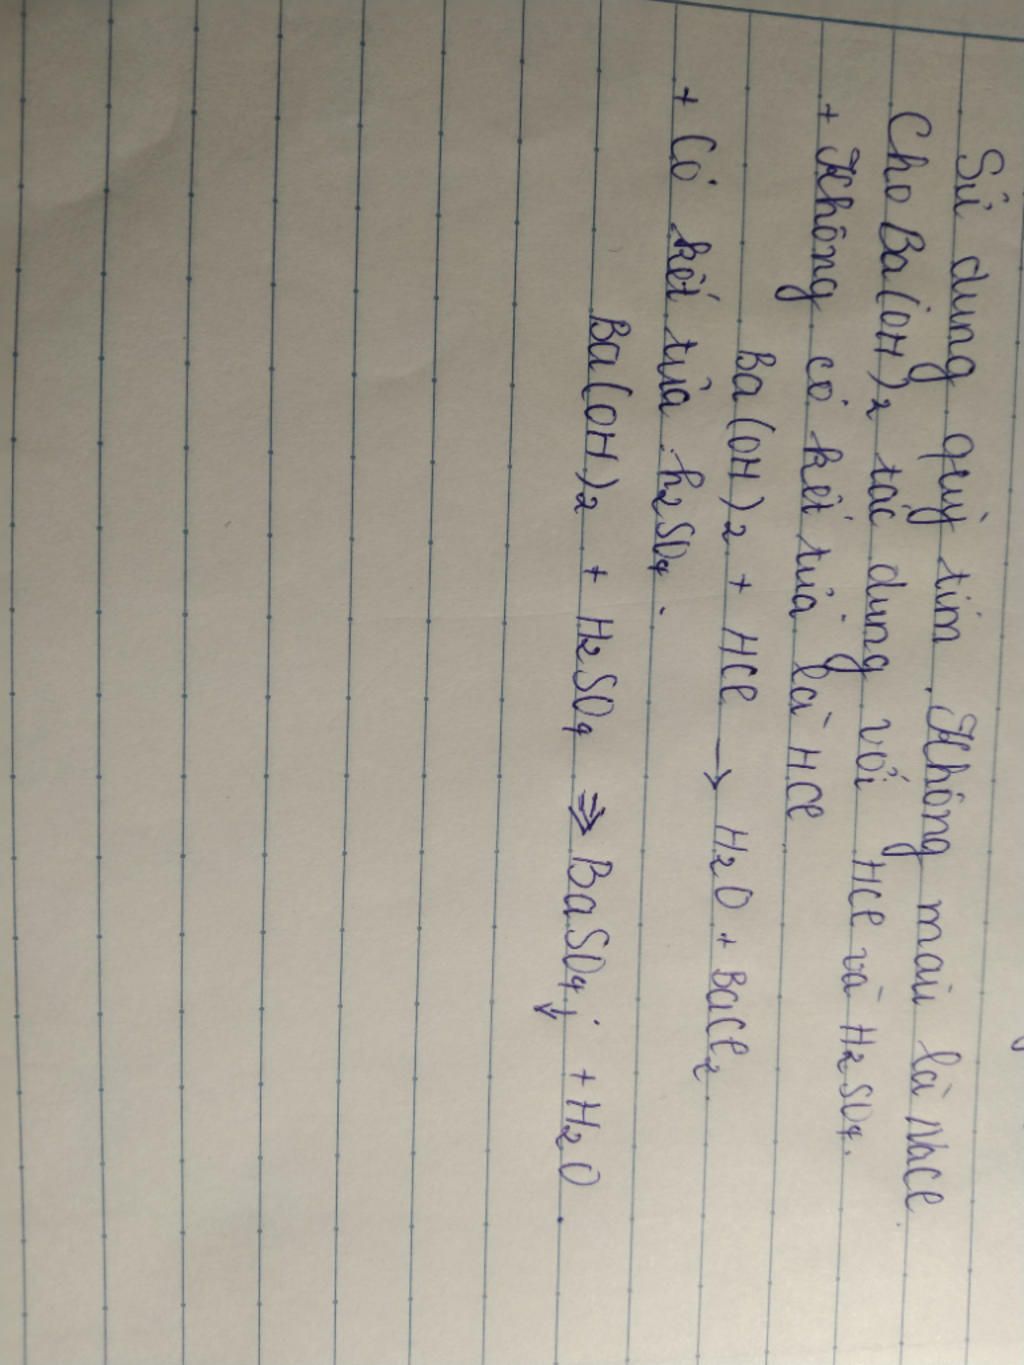 Sử dụng quỳ tím. Không màu là NaCl.
Cho Ba(OH)₂ tác dụng với HCl và H₂SO₄.
+ Không có kết tủa là HCl
Ba(OH)₂ + HCl → H₂O + BaCl₂.
+ Có kết tủa: h₂SO₄.
Ba(OH)₂ + H₂SO₄ ⇒ BaSO₄↓ + H₂O.